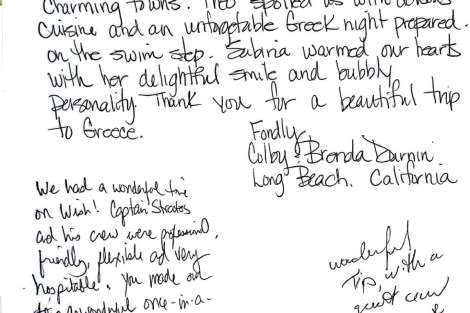 charming towns. They spoiled us with
cuisine and an unforgetable Greek night prepared
on the swim step. Sabria warmed our hearts
with her delightful smile and bubbly
personality. Thank you for a beautiful trip
to Greece.
Fondly,
Colby & Brenda
Long Beach, California
We had a wonderful time
on Wish! Captain
and his crew were professional,
friendly, flexible and very
hospitable. You made our
a wonderful once-in-a-
wonderful
Trip, with a
great crew
&